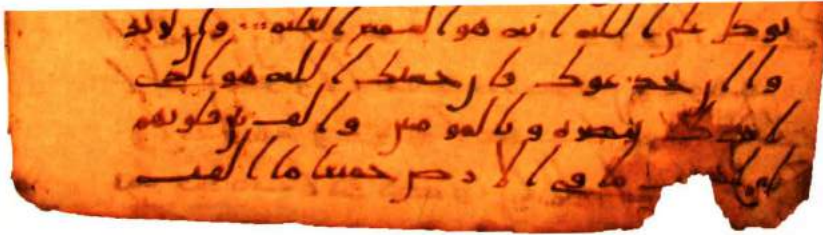 توكل على الله انه هو السميع العليم وان يريد
وا ان يخدعوك فان حسبك الله هو الذي
ايدك بنصره وبالمومنين والف بين قلوبهم
لو انفقت ما في الارض جميعا ما الفت